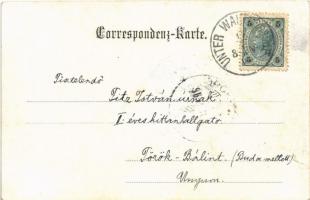 Correspondenz-Karte.
UNTER WAL
5 5
Tisztelendő
Tita István úrnak
I. éves hittanhallgató
Török-Bálint. (Buda mellett)
Ungarn.